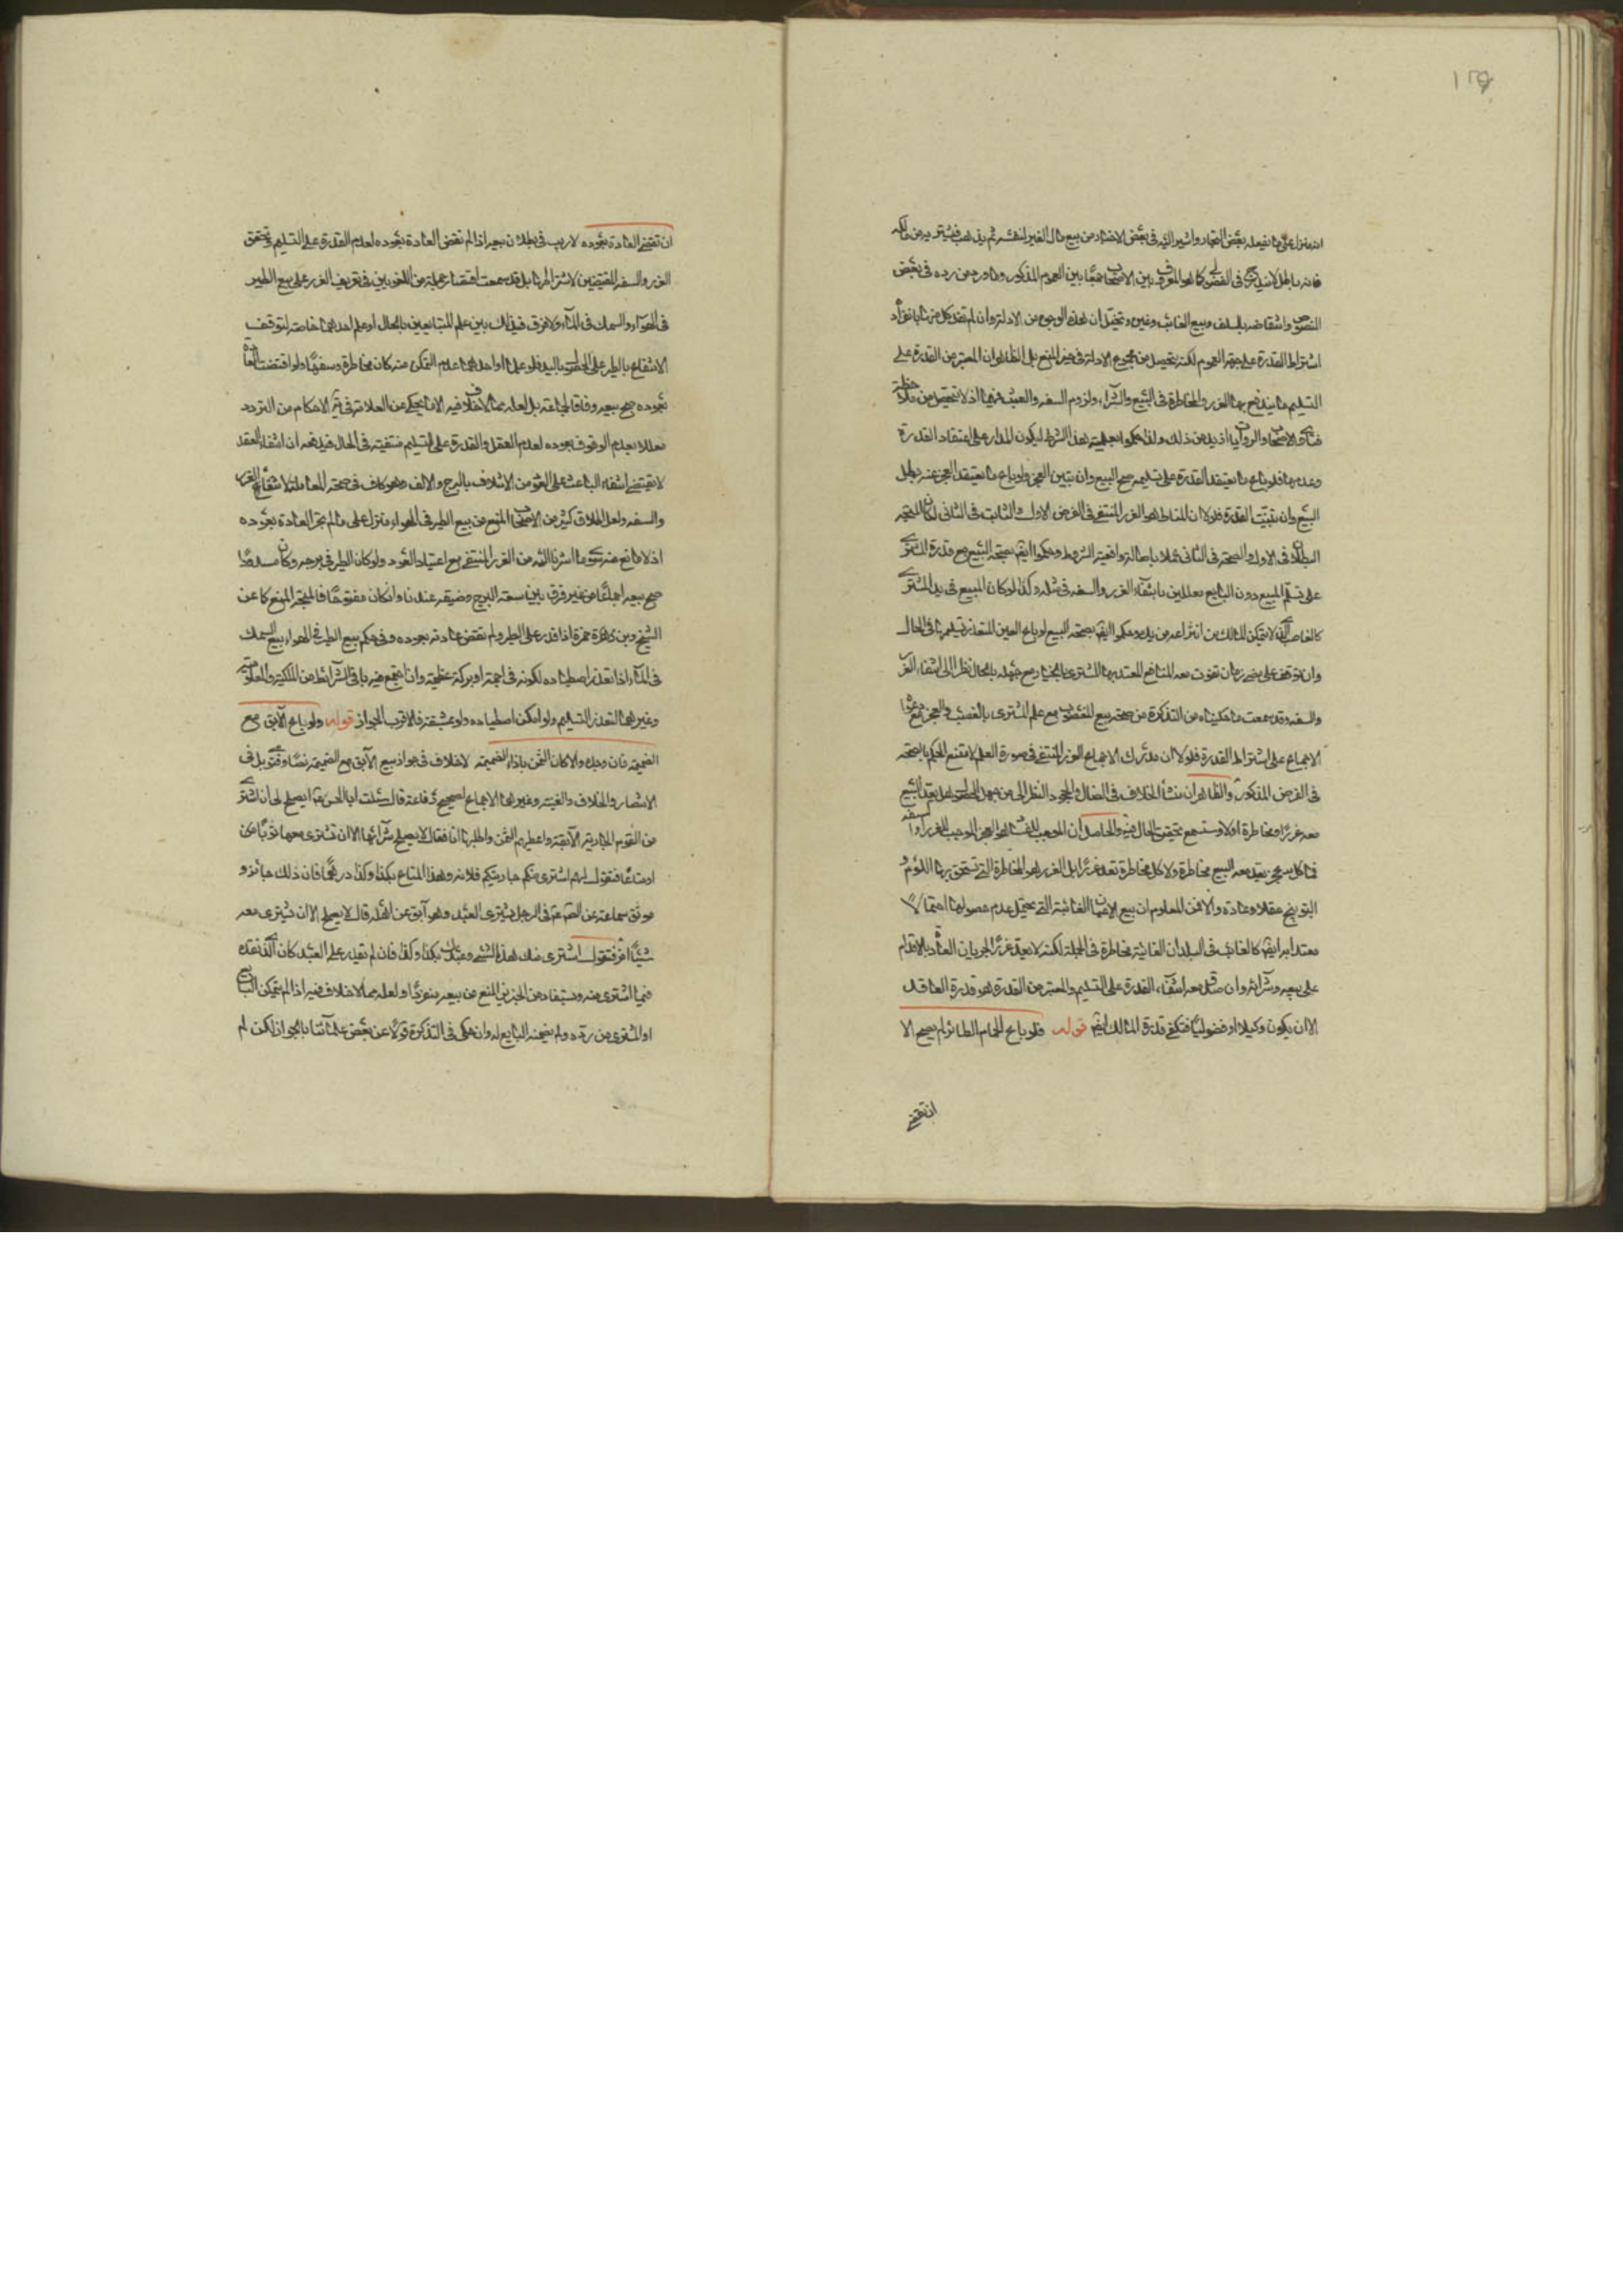 انه منزل على ما يفعله بعض التجار واشير اليه في بعض الاخبار من بيع مال الغير لنفسه ثم يذهب فيشتريه من مالكه
فانه باطل لا يندرج في الفضولي كما هو المعروف بين الاصحاب جمعا بين العموم المذكور وما ورد من رده في بعض
النصوص وانتقاضه بالسلف وبيع الغائب وغيره وتخيل ان هذه الوجوه من الادلة وان لم تفد كل منها بانفراد
اشتراط القدرة على جهة العموم لكنه يتحصل من مجموع الادلة في حيز المنع بل الظاهر ان المعتبر من القدرة على
التسليم ما يندفع بها الغرر والمخاطرة في البيع والشراء ولزوم السفه والعبث فيهما اذ لا يتحصل من ملاحظة
فتاوى الاصحاب والروايات ازيد من ذلك ولذا حكموا بعلمية هذا الشرط ليكون المدار على اعتقاد القدرة
وعدمها فلو باع ما يعتقد القدرة على تسليمه صح البيع وان تبين العجز ولو باع ما يعتقد العجز عنه بطل
البيع وان تبينت القدرة فلولا ان المناط هو الغرر المنتفي في الفرض الاول والثابت في الثاني لكان المتجه
البطلان في الاول والصحة في الثاني عملا باصالة واقعية الشروط وحكموا ايضا بصحة البيع مع قدرة المشتري
على تسلم المبيع دون البايع معللين بانتفاء الغرر والسفه في مثله وكذا لو كان المبيع في يد المشتري
كالغاصب الذي لا يتمكن المالك من انتزاعه من يده وحكموا ايضا بصحة البيع لو باع العين المتعذر تسليمها في الحال
وان توقف على مضي زمان تفوت معه المنافع المعتد بها للمشتري بالخيار مع جهله بالحال نظرا الى انتفاء الغرر
والسفه وقد سمعت ما حكيناه من التذكرة من صحة بيع المغصوب مع علم المشتري بالغصب والعجز مع دعوى
الاجماع على اشتراط القدرة فلولا ان مدرك الاجماع الغرر المنتفي في صورة العلم لامتنع الحكم بالصحة
في الفرض المذكور والظاهر ان منشأ الخلاف في الضال والمجحود النظر الى من جهل الحصول هل يعد البيع
معه غررا ومخاطرة او لا وستسمع تحقيق الحال فيه والحاصل ان الموجب للفساد هو العجز الموجب للغرر او السفه
فما كل عجز يعد معه البيع مخاطرة ولا كل مخاطرة تعد غررا بل الغرر هو المخاطرة التي تستحق بها اللوم و
التوبيخ عقلا وعادة والا فمن المعلوم ان بيع الاعيان الغائبة التي يحتمل عدم حصولها احتمالا
معتدا به ايضا كالغائب في البلدان الغائية مخاطرة في الجملة لكنه لا يعد غررا لجريان العادة بالاقدام
على بيعه وشرائه وان صدق معه انتفاء القدرة على التسليم والمعتبر من القدرة هو قدرة العاقد
الا ان يكون وكيلا او فضوليا فتكفي قدرة المالك ايضا قوله فلو باع الحمام الطائر لم يصح الا
ان تقتضي
ان تقتضي العادة بعوده لا ريب في بطلان بيعه اذا لم تقض العادة بعوده لعدم القدرة على التسليم وتحقق
الغرر والسفه المقتضيين لاشتراطها بل قد سمعت اقتصار جملة من اللغويين في تعريف الغرر على بيع الطير
في الهواء والسمك في الماء ولا فرق في ذلك بين علم المتبايعين بالحال او علم احدهما خاصة لتوقف
الانتفاع بالطير على الحصول باليد فلو علما او احدهما عدم التمكن منه كان مخاطرة وسفها ولو اقتضت العادة
بعوده صح بيعه وفاقا لجماعة بل لعله مما لا خلاف فيه الا ما يحكى عن العلامة في نهاية الاحكام من التردد
معللا بعدم الوثوق بعوده لعدم العقل والقدرة على التسليم منتفية في الحال فيدفعه ان انتفاء العقد
لا يقتضي انتفاء الباعث على العود من الائتلاف بالبرج والالف وهو كاف في صحة المعاملة لانتفاء الغرر
والسفه ولعل اطلاق كثير من الاصحاب المنع من بيع الطير في الهواء منزل على ما لم تجر العادة بعوده
اذ لا مانع منه سوى ما اشرنا اليه من الغرر المنتفي مع اعتياد العود ولو كان الطير في برجه وكان مسدودا
صح بيعه اجماعا من غير فرق بين سعة البرج وضيقه عندنا وان كان مفتوحا فالمتجه المنع كما عن
الشيخ وبن زهرة وحمزة اذا قدر على الطير ولم تقتض عادته بعوده وفي حكم بيع الطير في الهواء بيع السمك
في الماء اذا تعذر اصطياده لكونه في اجمة او بركة عظيمة وان اجتمع فيه باقي الشرائط من الملكية والمعلومية
وغيرهما لتعذر التسليم ولو امكن اصطياده ولو بمشقة فالاقرب الجواز قوله ولو باع الآبق مع
الضميمة فان وجد والا كان الثمن بازاء الضميمة لا خلاف في جواز بيع الآبق مع الضميمة نصا وفتوى بل في
الانتصار والخلاف والغنية وغيرها الاجماع لصحيح رفاعة قال سئلت ابا الحسن ع ايصلح لي ان اشتري
من القوم الجارية الآبقة واعطيهم الثمن واطلبها انا فقال لا يصلح شرائها الا ان تشتري معها ثوبا
او متاعا فتقول لهم اشتري منكم جاريتكم فلانه وهذا المتاع بكذا وكذا درهما فان ذلك جائز و
موثق سماعة عن الصادق ع في الرجل يشتري العبد وهو آبق عن اهله قال لا يصلح الا ان يشتري معه
شيئا اخر فيقول اشتري منك هذا الشيء وعبدك بكذا وكذا فان لم يقدر على العبد كان الذي نقده
فيما اشترى منه ويستفاد من الخبرين المنع من بيعه منفردا ولعله مما لا خلاف فيه اذا لم يتمكن البايع
او المشتري من رده ولم يضمنه البايع له وان حكى في التذكرة قولا عن بعض علمائنا بالجواز لكن لم